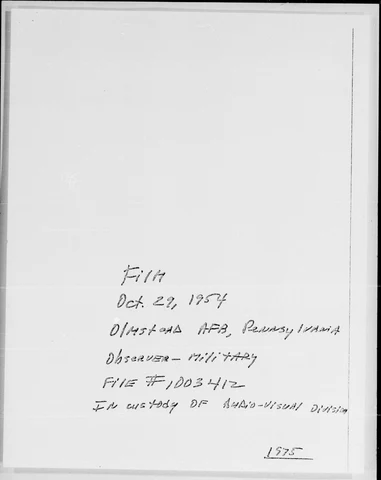 Film
Oct. 29, 1954
Olmstead AFB, Pennsylvania
Observer - Military
File #1D03412
In custody of Audio-Visual Division
1975